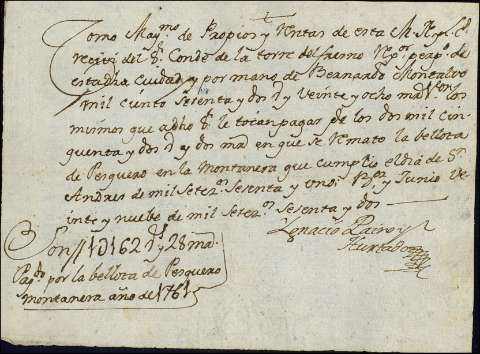 Como May.mo de Propios y Rentas de esta M. N. y L. C.
recivi del S. Conde de la torre del fresno R.or perp.o de
esta dha Ciudad, y por mano de Bernardo Monsalvo
mil ciento sesenta y dos r.s y veinte y ocho mrs von los
mismos que a dho S.r le tocan pagar de los dos mil cin
quenta y dos r.s y dos mrs en que se Remato la bellota
de Pesquero en la Montanera que cumplio el dia de S.n
Andres de mil setez.os sesenta y uno: y Junio ve
inte y nuebe de mil setez.os sesenta y dos
Ignacio
Hurtado
Son // 1162 r.s y 28 mrs.
Pag.do por la bellota de Pesquero
montanera año de 1761